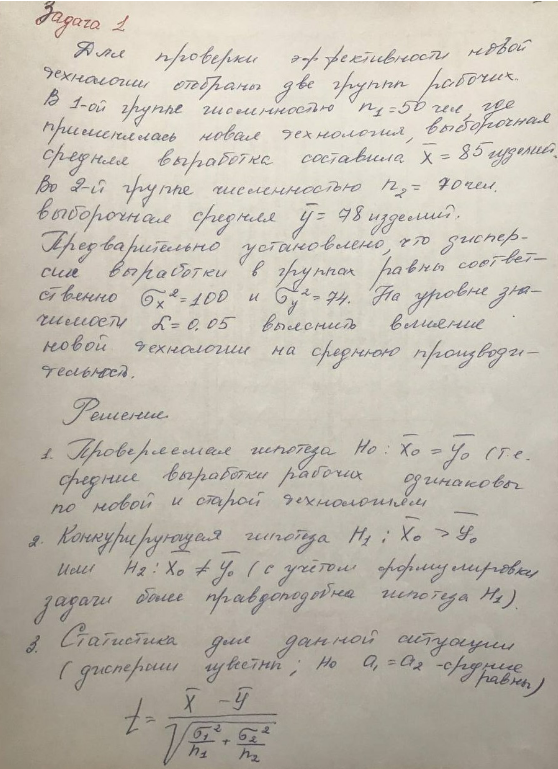 Задача 1
Для проверки эффективности новой
технологии отобраны две группы рабочих.
В 1-ой группе численностью n₁=50 чел, где
применялась новая технология, выборочная
средняя выработка составила x̄ = 85 изделий.
Во 2-й группе численностью n₂= 70 чел.
выборочная средняя ȳ = 78 изделий.
Предварительно установлено, что диспер-
сии выработки в группах равны соответ-
ственно σₓ²=100 и σᵧ²=74. На уровне зна-
чимости α=0,05 выяснить влияние
новой технологии на среднюю производи-
тельность.
Решение
1. Проверяемая гипотеза H₀: x̄₀ = ȳ₀ (т.е.
средние выработки рабочих одинаковы
по новой и старой технологиям
2. Конкурирующая гипотеза H₁: x̄₀ > ȳ₀
или H₂: x̄₀ ≠ ȳ₀ (с учётом формулировки
задачи более правдоподобна гипотеза H₁).
3. Статистика для данной ситуации
(дисперсии известны; но a₁=a₂ - средние
равны)
t = (x̄ - ȳ) / √(σ₁²/n₁ + σ₂²/n₂)